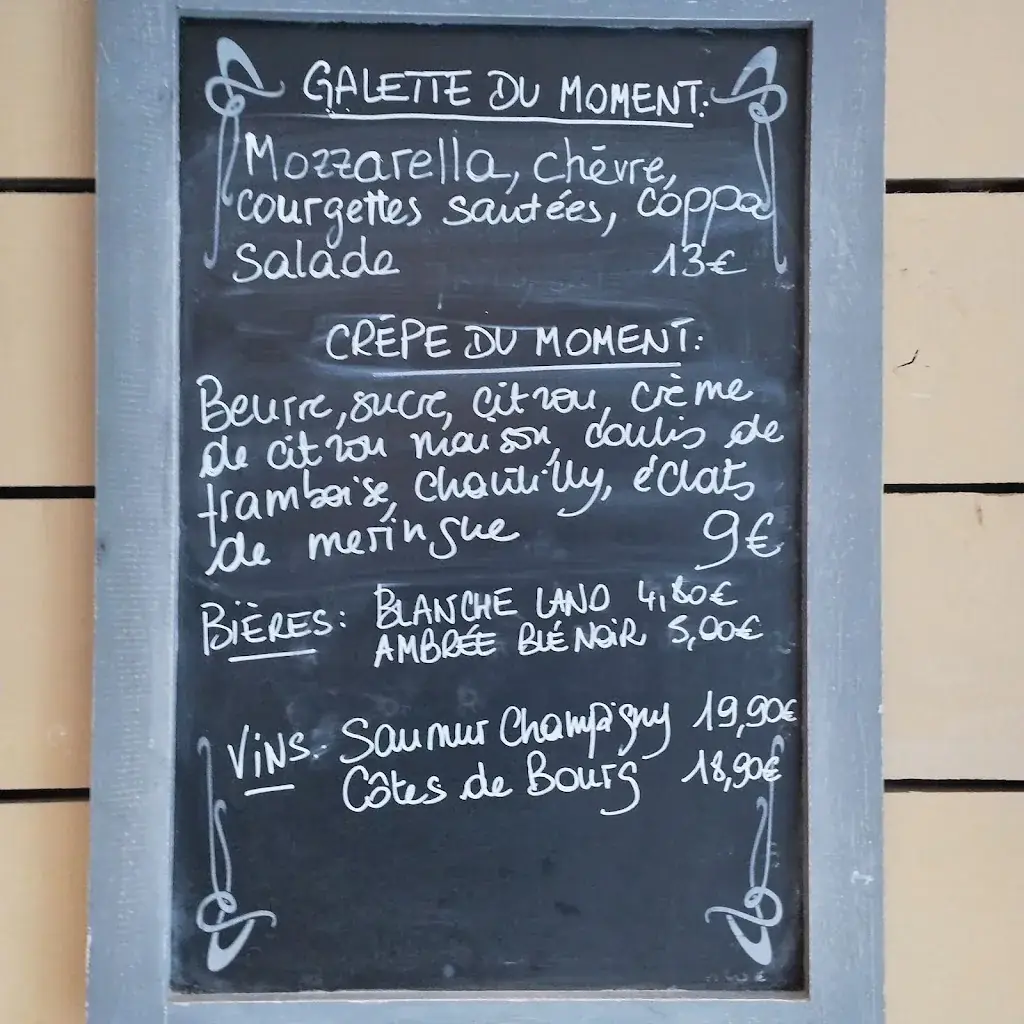 GALETTE DU MOMENT:
Mozzarella, chèvre,
courgettes sautées, coppa
Salade 13€
CRÊPE DU MOMENT:
Beurre, sucre, citron, crème
de citron maison, coulis de
framboise, chantilly, éclats
de meringue 9€
BIÈRES: BLANCHE LANO 4,80€
AMBRÉE BLÉ NOIR 5,00€
VINS: Saumur Champigny 19,90€
Côtes de Bourg 18,90€